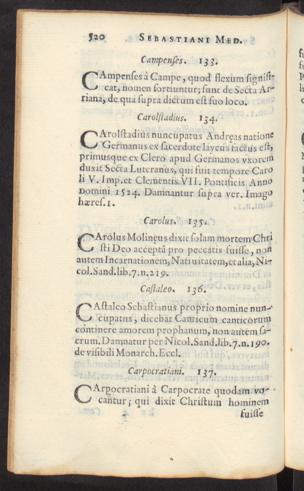 520 SEBASTIANI MED.
Campenses. 133.
CAmpenses à Campe, quod flexum signifi
cat, nomen sortiuntur; sunt de Secta Ar-
riana, de qua supra dictum est suo loco.
Carolstadius. 134.
CArolstadius nuncupatus Andreas natione
Germanus ex sacerdote laycus factus est,
primusque ex Clero apud Germanos vxorem
duxit Secta Luteranus, qui fuit tempore Caro
li V. Imp. et Clementis VII. Pontificis Anno
Domini 1524. Damnantur supra ver. Imago
hæres. 1.
Carolus. 135.
CArolus Molineus dixit solam mortem Chri
sti Deo acceptā pro peccatis fuisse, non
autem Incarnationem, Natiuitatem, et alia, Ni-
col. Sand. lib. 7. n. 219.
Castaleo. 136.
CAstaleo Sebastianus proprio nomine nun-
cupatus, dicebat Canticum canticorum
continere amorem prophanum, non autem sa-
crum. Damnatur per Nicol. Sand. lib. 7. n. 190.
de visibili Monarch. Eccl.
Carpocratiani. 137.
CArpocratiani à Carpocrate quodam vo-
cantur; qui dixit Christum hominem
fuisse